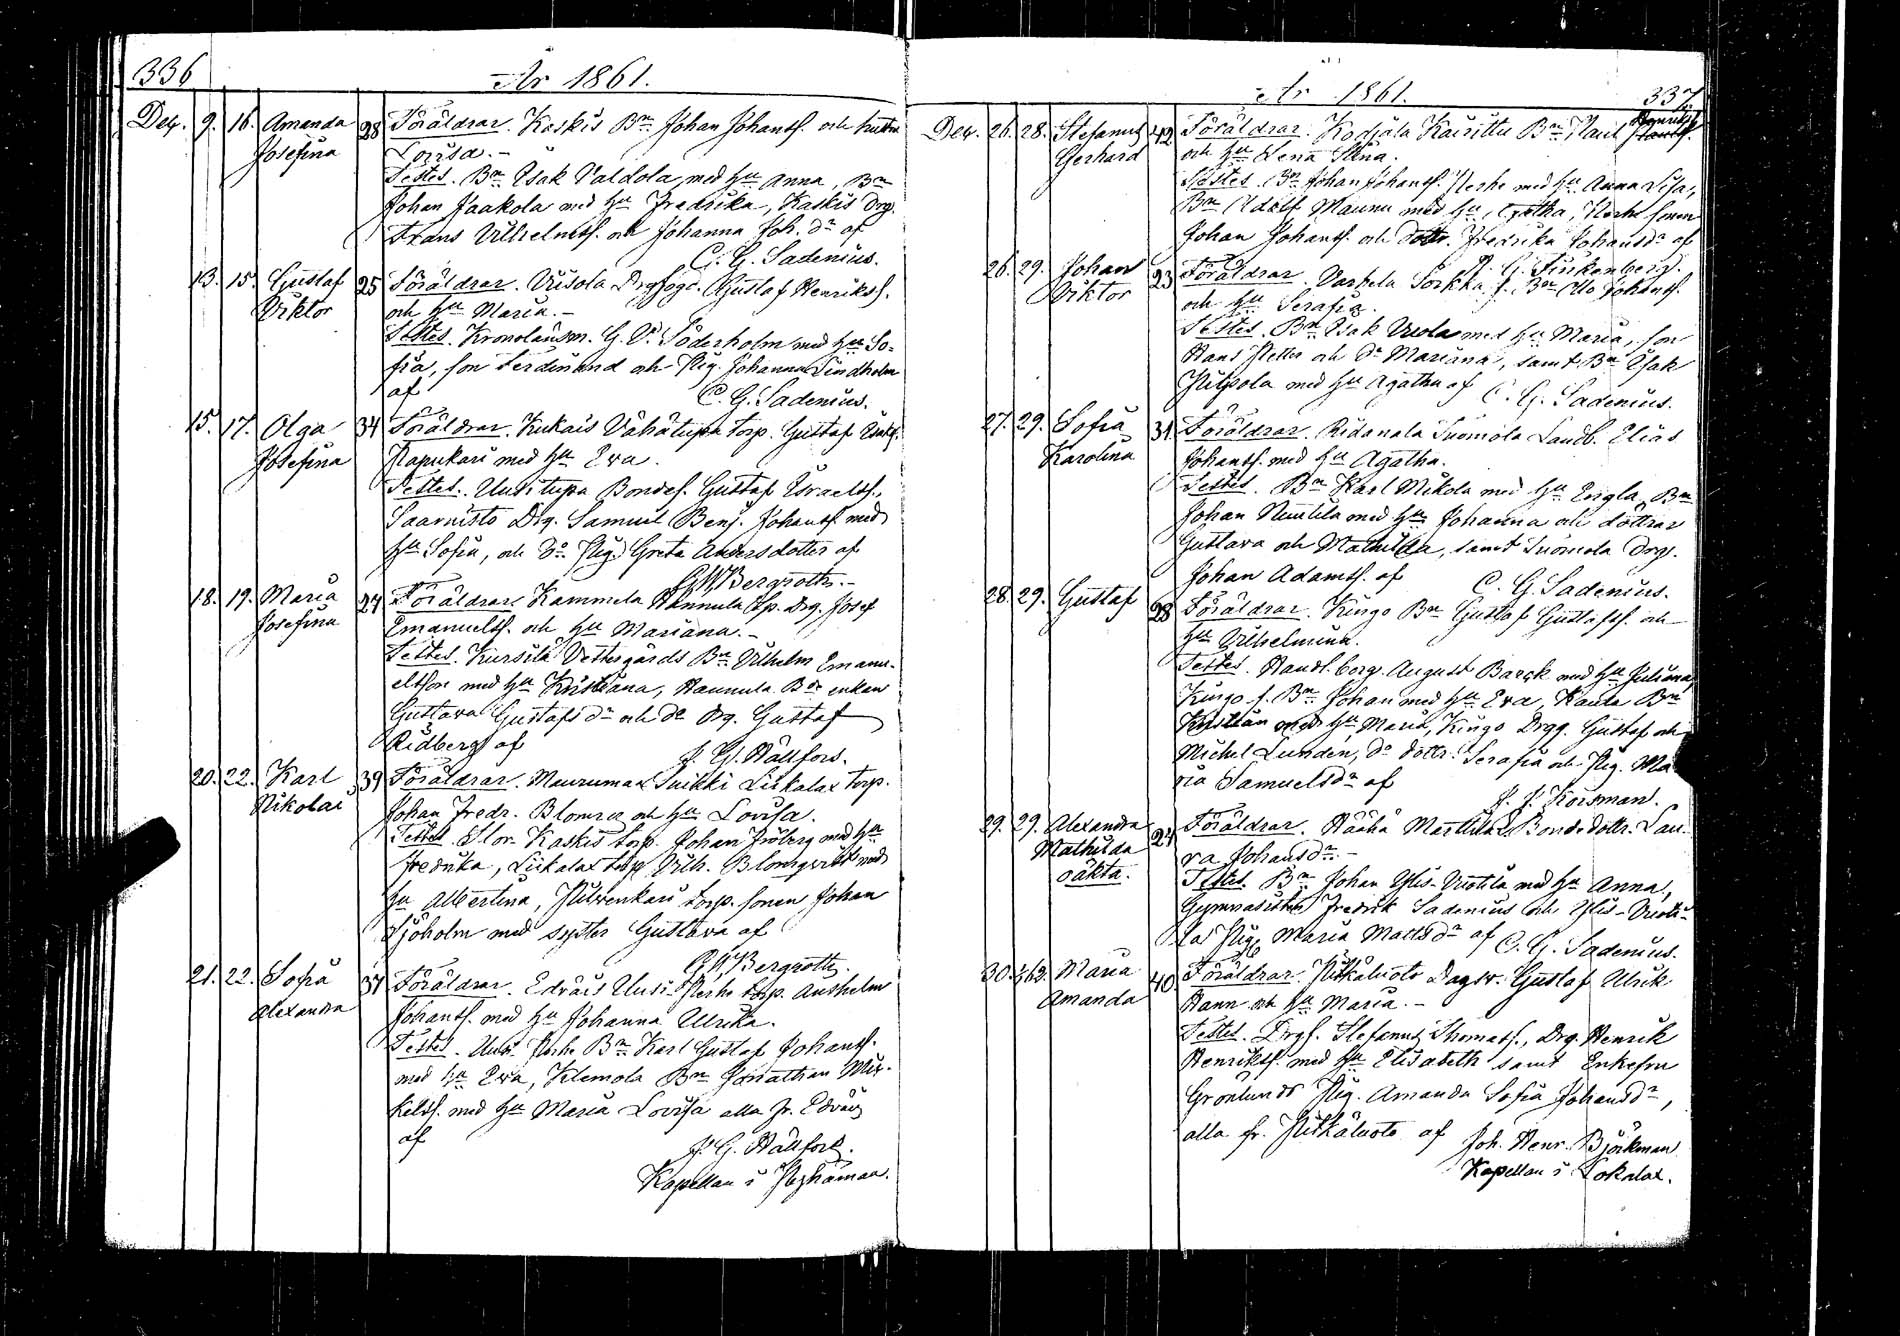 336
År 1861.
Dec. 9. 16. Amanda Josefina 28 Föräldrar. Kaskis Bn Johan Johansf. och hustru
Lovisa.-
Testes. Bn Isak Valdola med hu Anna, Bn
Johan Jaakola med hu Fredrika, Kaskis Drg.
Frans Vilhelmsf. och Johanna Joh. dr af
C. G. Sadenius.
13. 15. Gustaf Viktor 25 Föräldrar. Drgfogd. Gustaf Henriksf.
och hu Maria.-
Testes. Kronolänsm. G. Söderholm med hu So-
fia, son Ferdinand och Pig. Johanna Lindholm
af
C. G. Sadenius.
15. 17. Olga Josefina 34 Föräldrar. Kukais Vähätupa torp. Gustaf Isaksf.
med hu Eva.
Testes. Uusitupa Bondes. Gustaf Israelsf.,
Saarnisto Drg. Samuel Benj. Johansf. med
hu Sofia, och do Pig. Greta Andersdotter af
GWBergroth.-
18. 19. Maria Josefina 27 Föräldrar. Kammela Hannula Drg. Josef
Emanuelsf. och hu Mariana.-
Testes. Kursila Vestergårds Bn Vilhelm Emanu-
elsson med hu Kristiana, Hannula Bde enkan
Gustava Gustafs dr och do Drg. Gustaf
Ridberg af
J. G. Hällfors.
20. 22. Karl Nikolai 39 Föräldrar. Maurumaa Suikki Liikalax torp.
Johan Fredr. och hu Lovisa.
Testes. Stor-Kaskis torp. Johan Fröberg med hu
Fredrika, Liikalax torp. Vilh. Blomqvist med
hu Albertina, torp. sonen Johan
Sjöholm med syster Gustava af
GWBergroth.
21. 22. Sofia Alexandra 37 Föräldrar. Edväis Uusi-Perhe torp. Anshelm
Johansf. med hu Johanna Ulrika.
Testes. Uusi-Perhe Bn Karl Gustaf Johansf.
med hu Eva, Klemola Bn Jonathan Mik-
kelsf. med hu Maria Lovisa alla fr. Edväis
af
J. G. Hällfors.
Kapellan i Pyhämaa.
År 1861.
337
Dec. 26. 28. Stefanus Gerhard 42 Föräldrar. Kodjala Kaurittu Bn Paul Henriksf.
och hu Lena Stina.
Testes. Bn Johan Johansf. Perhe med hu Anna Lisa,
Bn Adolf Maunu med hu Agatha, Perhe sonen
Johan Johansf. och dottr. Fredrika Johansdr af
26. 29. Johan Viktor 23 Föräldrar. Varhela Sorkka f. Bn Johansf.
och hu Serafia.
Testes. Bn Isak Uusola med hu Maria, son
Hans Petter och dr Mariana, samt Bn Isak
med hu Agatha af
C. G. Sadenius.
27. 29. Sofia Karolina 31 Föräldrar. Ridanala Suomola Landb. Elias
Johansf. med hu Agatha.
Testes. Bn Karl Mikola med hu Engla, Bn
Johan Nuutila med hu Johanna och döttrar
Gustava och Mathilda, samt Suomola Drg.
Johan Adamsf. af
C. G. Sadenius.
28. 29. Gustaf 28 Föräldrar. Kungo Bn Gustaf Gustafsf. och
hu Vilhelmina.
Testes. Handl. borg. August Barck med hu Juliana,
Kungo f. Bn Johan med hu Eva, Kauta Bn
Kristian med hu Maria, Kungo Drgg. Gustaf och
Michel Lunden, do dottr. Serafia och Pig. Ma-
ria Samuelsdr af
J. J. Korsman.
29. 29. Alexandra Mathilda oäkta. 24 Föräldrar. Hääha Marttila Bondedottr. Lau-
ra Johansdr.-
Testes. Bn Johan Ylis-Vuotila med hu Anna,
Gymnasisten Fredrik Sadenius och Ylis-Vuoti-
las Pig. Maria Mattsdr af
C. G. Sadenius.
30. 1/1 62. Maria Amanda 40 Föräldrar. Pitkäluoto Dagsv. Gustaf Ulrik
Hann och hu Maria.-
Testes. Drgf. Stefanus Thomasf., Drg. Henrik
Henriksf. med hu Elisabeth samt Enkefru
Grönlunds Pig. Amanda Sofia Johansdr,
alla fr. Pitkäluoto af
Joh. Henr. Björkman
Kapellan i Lokalax.